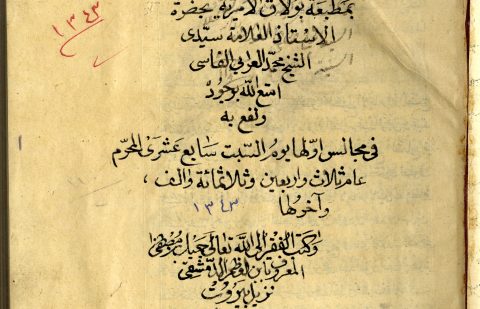 ١٣٤٣
بمطبعة بولاق الأميرية بحضرة
الاستاذ العلامة سيدى
الشيخ محمد العربي الفاسى
امتع الله بوجوده
ونفع به
فى مجالس اولها يوم السبت سابع عشرى المحرم
عام ثلاث واربعين وثلاثمائة والف ،
وآخرها ١٣٤٣
وكتب الفقير الى الله تعالى جميل بن مصطفى
المعروف بابن العظم الدمشقى
نزيل بيروت